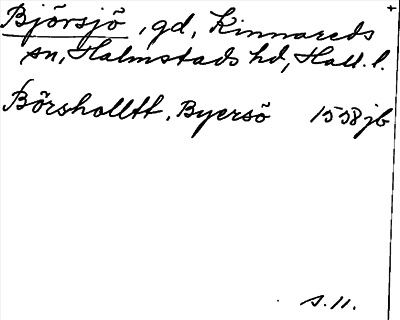 Björsjö, gd, Kinnareds
sn, Halmstads hd, Hall. l.
Börsholltt, Byersö 1558 jb
s. 11.